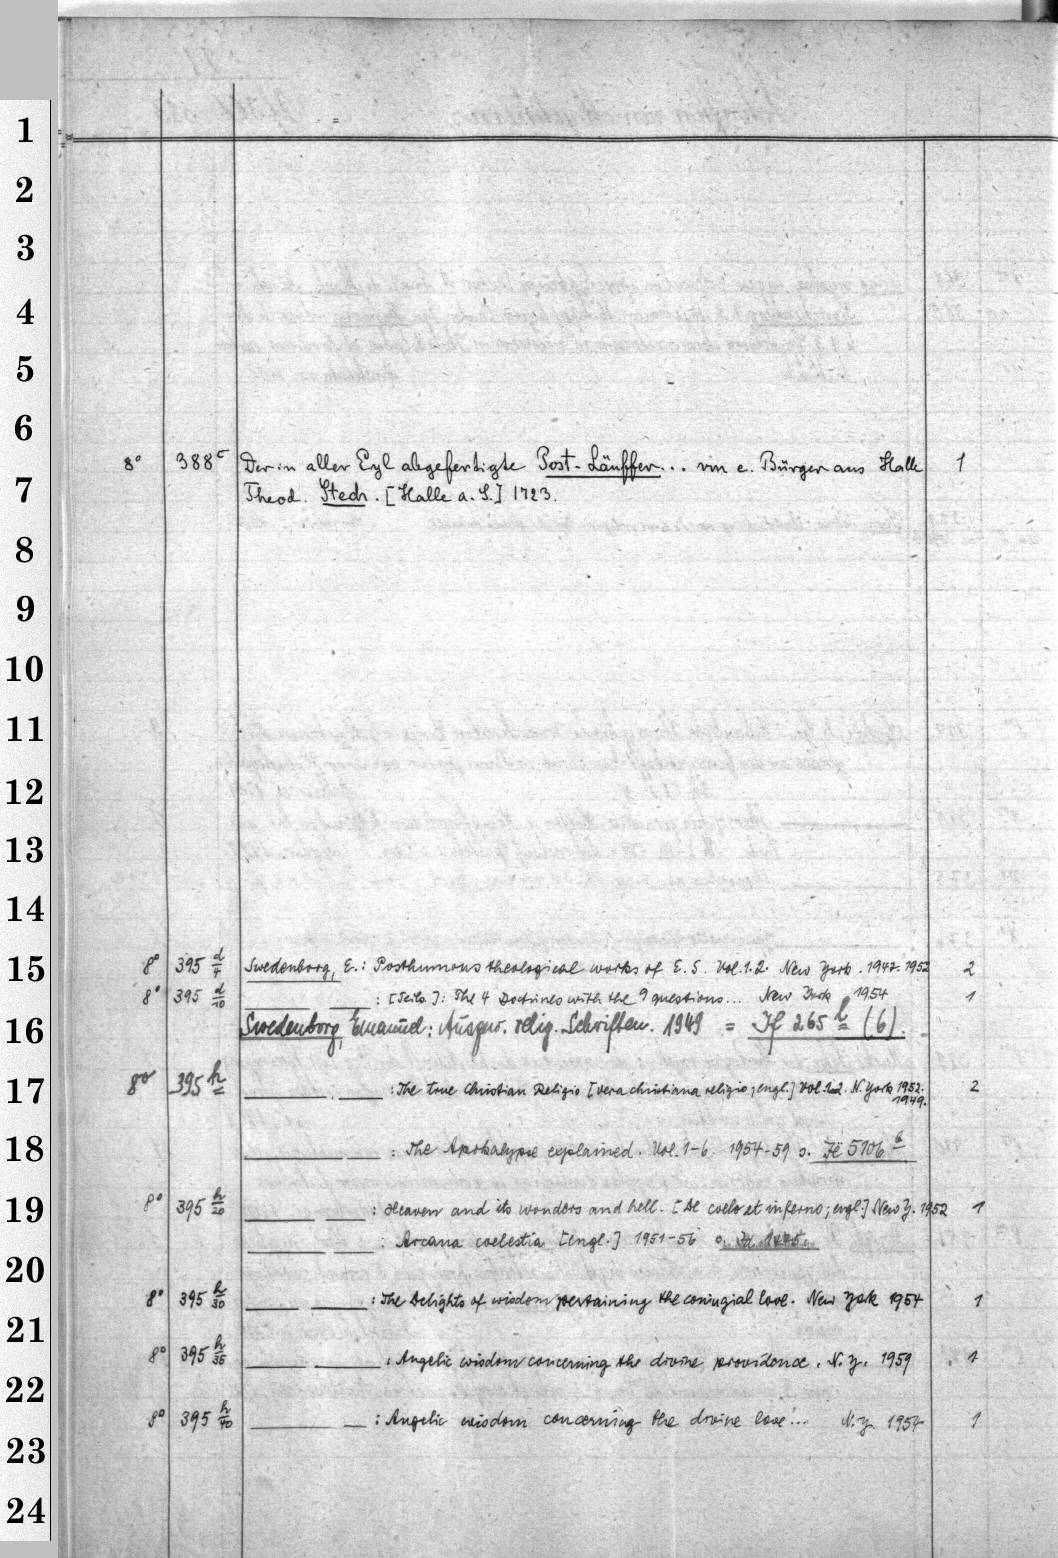 1
2
3
4
5
6
8° 388c Der in aller Eyl abgefertigte Post-Läuffer... von e. Bürger aus Halle 1
7 Theod. Stech. [Halle a. S.] 1723.
8
9
10
11
12
13
14
15 8° 395 d/4 Swedenborg, E.: Posthumous theological works of E. S. Vol. 1.2. New York. 1947-1952 2
8° 395 d/10 : [Teils.]: The 4 Doctrines with the 9 questions... New York 1954 1
16 Swedenborg, Emanuel: Ausgew. relig. Schriften. 1949 = If 265 (6).
17 8° 395 h : The true Christian Religio [vera christiana religio; engl.] Vol. 1.2. N. York 1952. 2
1949.
18 : The Apokalypse explained. Vol. 1-6. 1954-59 s. 5706
19 8° 395 h/20 : Heaven and its wonders and hell. [De coelo et inferno; engl.] New Y. 1952 1
: Arcana coelestia [engl.] 1951-56
20
8° 395 h/30 : The Delights of wisdom pertaining the conjugial love. New York 1954 1
21
8° 395 h/35 : Angelic wisdom concerning the divine providence. N. Y. 1959 1
22
8° 395 h/40 : Angelic wisdom concerning the divine love... N. Y. 1954 1
23
24